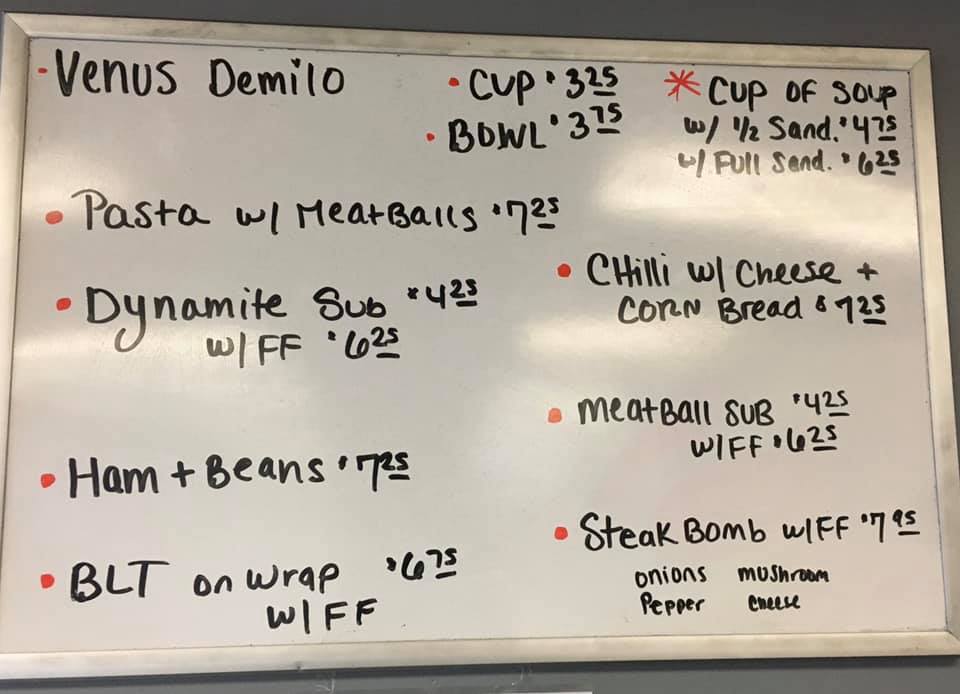 Venus Demilo
• CUP $3.25
• BOWL $3.75
* CUP OF SOUP
w/ 1/2 Sand. $4.75
w/ Full Sand. $6.25
• Pasta w/ MeatBalls $7.25
• Dynamite Sub $4.25
w/ FF $6.25
• CHilli w/ Cheese +
CORN Bread $7.25
• MeatBall SUB $4.25
w/ FF $6.25
• Ham + Beans $7.25
• Steak Bomb w/ FF $7.95
onions mushroom
Pepper cheese
• BLT on wrap $6.75
w/ FF